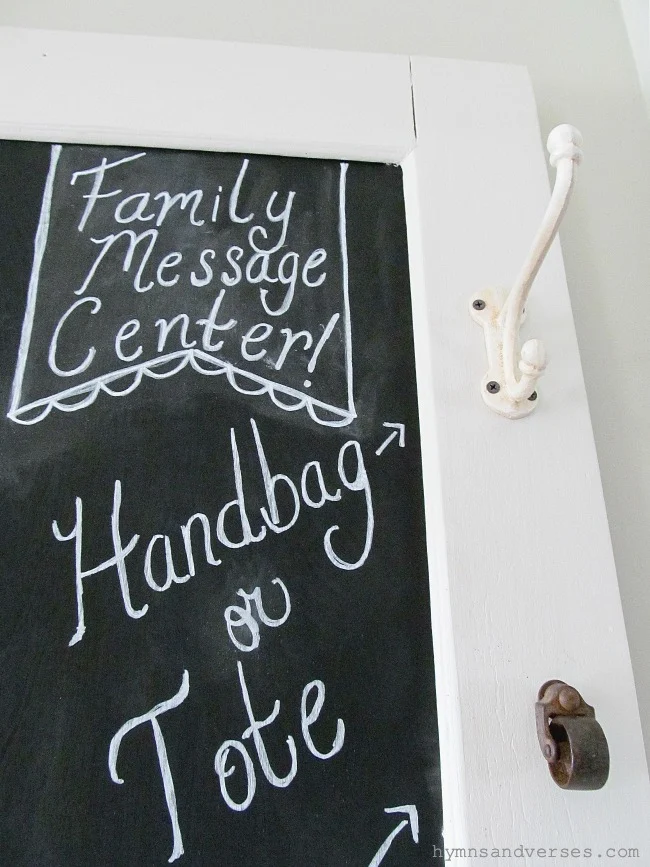 Family
Message
Center!
Handbag
or
Tote
hymnsandverses.com